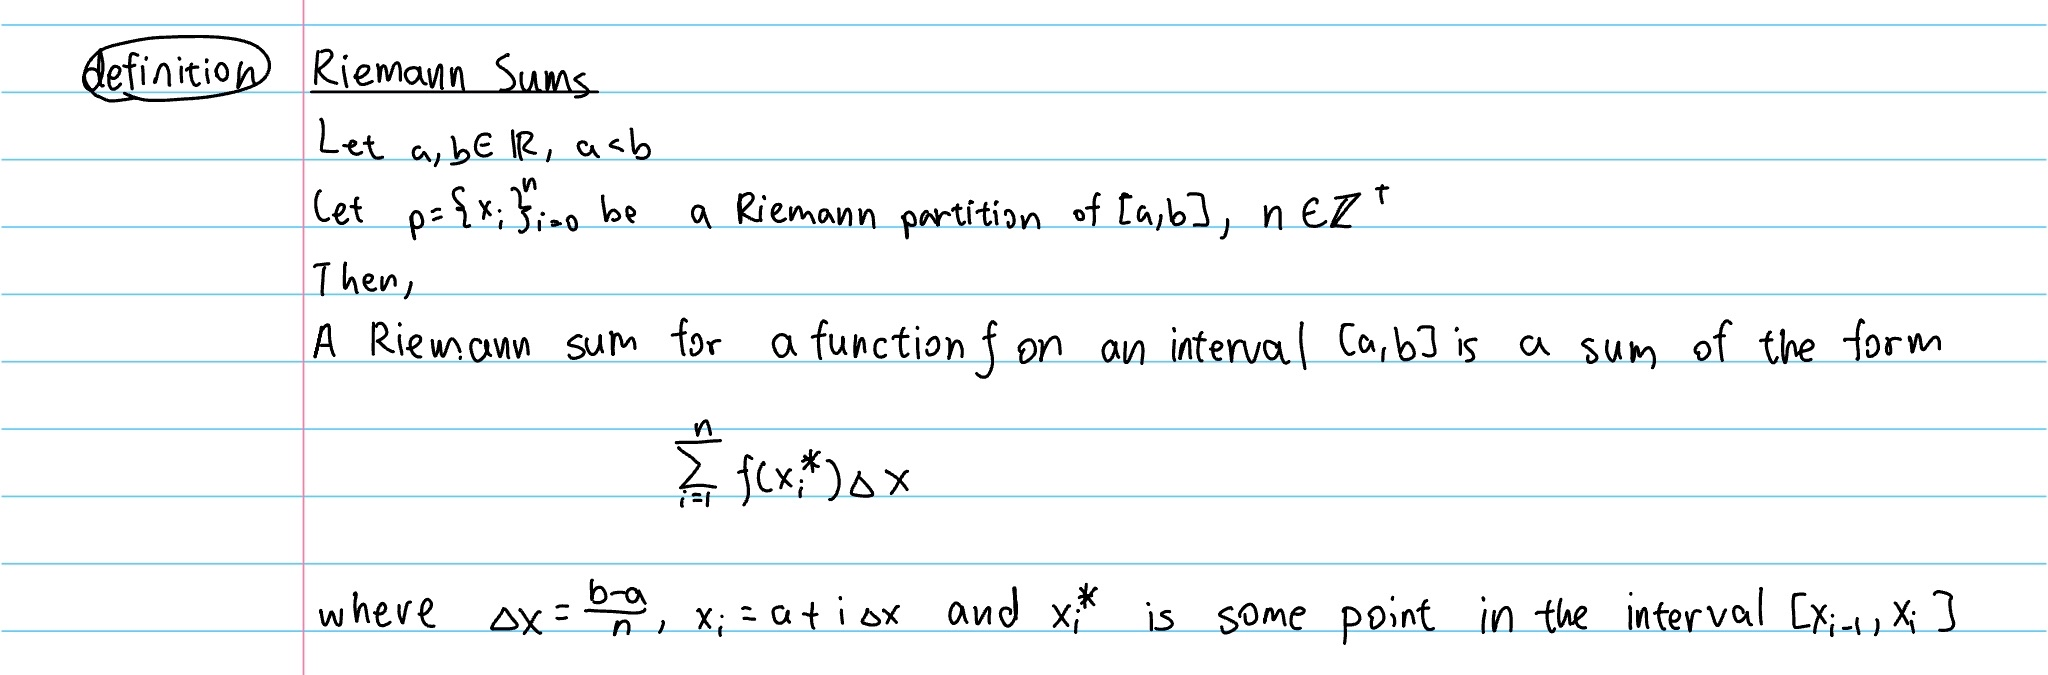 definition Riemann Sums
Let a, b ∈ ℝ, a < b
Let p = {x_i}_{i=0}^n be a Riemann partition of [a,b], n ∈ ℤ⁺
Then,
A Riemann sum for a function f on an interval [a,b] is a sum of the form
\sum_{i=1}^{n} f(x_i^*) Δx
where Δx = \frac{b-a}{n}, x_i = a + i Δx and x_i^* is some point in the interval [x_{i-1}, x_i]